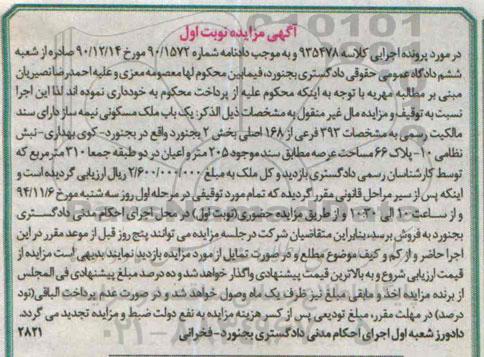 آگهی مزایده نوبت اول
در مورد پرونده اجرایی کلاسه ۹۳۵۴۷۸ و به موجب دادنامه شماره ۹۰/۱۵۷۲ مورخ ۹۰/۱۲/۱۴ صادره از شعبه
ششم دادگاه عمومی حقوقی دادگستری بجنورد، فیمابین محکوم لها معصومه معزی و علیه احمدرضا نصیریان
مبنی بر مطالبه مهریه با توجه به اینکه محکوم علیه از پرداخت محکوم به خودداری نموده اند لذا این اجرا
نسبت به توقیف و مزایده مال غیر منقول به مشخصات ذیل الذکر: یک باب ملک مسکونی نیمه ساز دارای سند
مالکیت رسمی به مشخصات ۳۹۳ فرعی از ۱۶۸ اصلی بخش ۲ بجنورد واقع در بجنورد- کوی بهداری- نبش
نظامی ۱۰- پلاک ۶۶ مساحت عرصه مطابق سند موجود ۲۰۵ متر و اعیان در دو طبقه جمعا ۳۱۰ متر مربع که
توسط کارشناسان رسمی دادگستری بازدید و کل ملک به مبلغ ۲/۶۰۰/۰۰۰/۰۰۰ ریال ارزیابی گردیده است و
اینکه پس از سیر مراحل قانونی مقرر گردیده که تمام مورد توقیفی در مرحله اول روز سه شنبه مورخ ۹۴/۱۱/۶
و از ساعت ۱۰ الی ۱۰:۳۰ و از طریق مزایده حضوری (نوبت اول) در محل اجرای احکام مدنی دادگستری
بجنورد به فروش برسد، بنابراین متقاضیان شرکت در جلسه مزایده می توانند پنج روز قبل از موعد مقرر در این
اجرا حاضر و از کم و کیف موضوع مطلع و در صورت تمایل از مورد مزایده بازدید نمایند بدیهی است مزایده از
قیمت ارزیابی شروع و به بالاترین قیمت پیشنهادی واگذار خواهد شد و ده درصد مبلغ پیشنهادی فی المجلس
از برنده مزایده اخذ و مابقی مبلغ نیز ظرف یک ماه وصول خواهد شد و در صورت عدم پرداخت الباقی (نود
درصد) در مهلت مقرر، مبلغ تودیعی پس از کسر هزینه مزایده به نفع دولت ضبط و مزایده تجدید می گردد.
دادورز شعبه اول اجرای احکام مدنی دادگستری بجنورد- فخرانی ۲۸۲۱